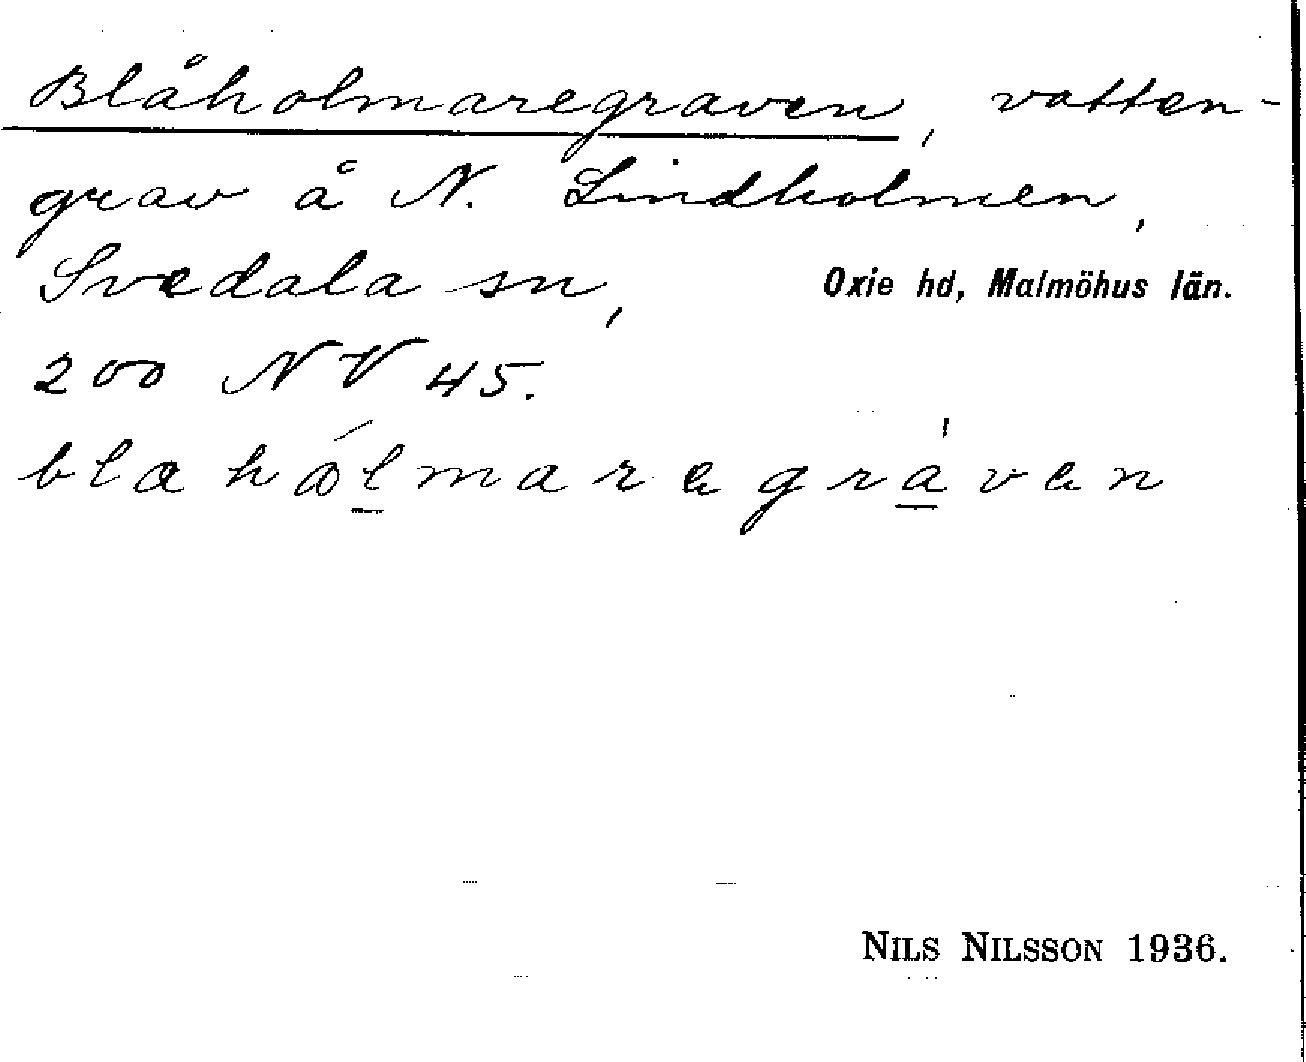 Blåholmaregraven, vatten-
grav å N. Lindholmen,
Svedala sn, Oxie hd, Malmöhus län.
200 NV 45.
blahólmaregràven
NILS NILSSON 1936.